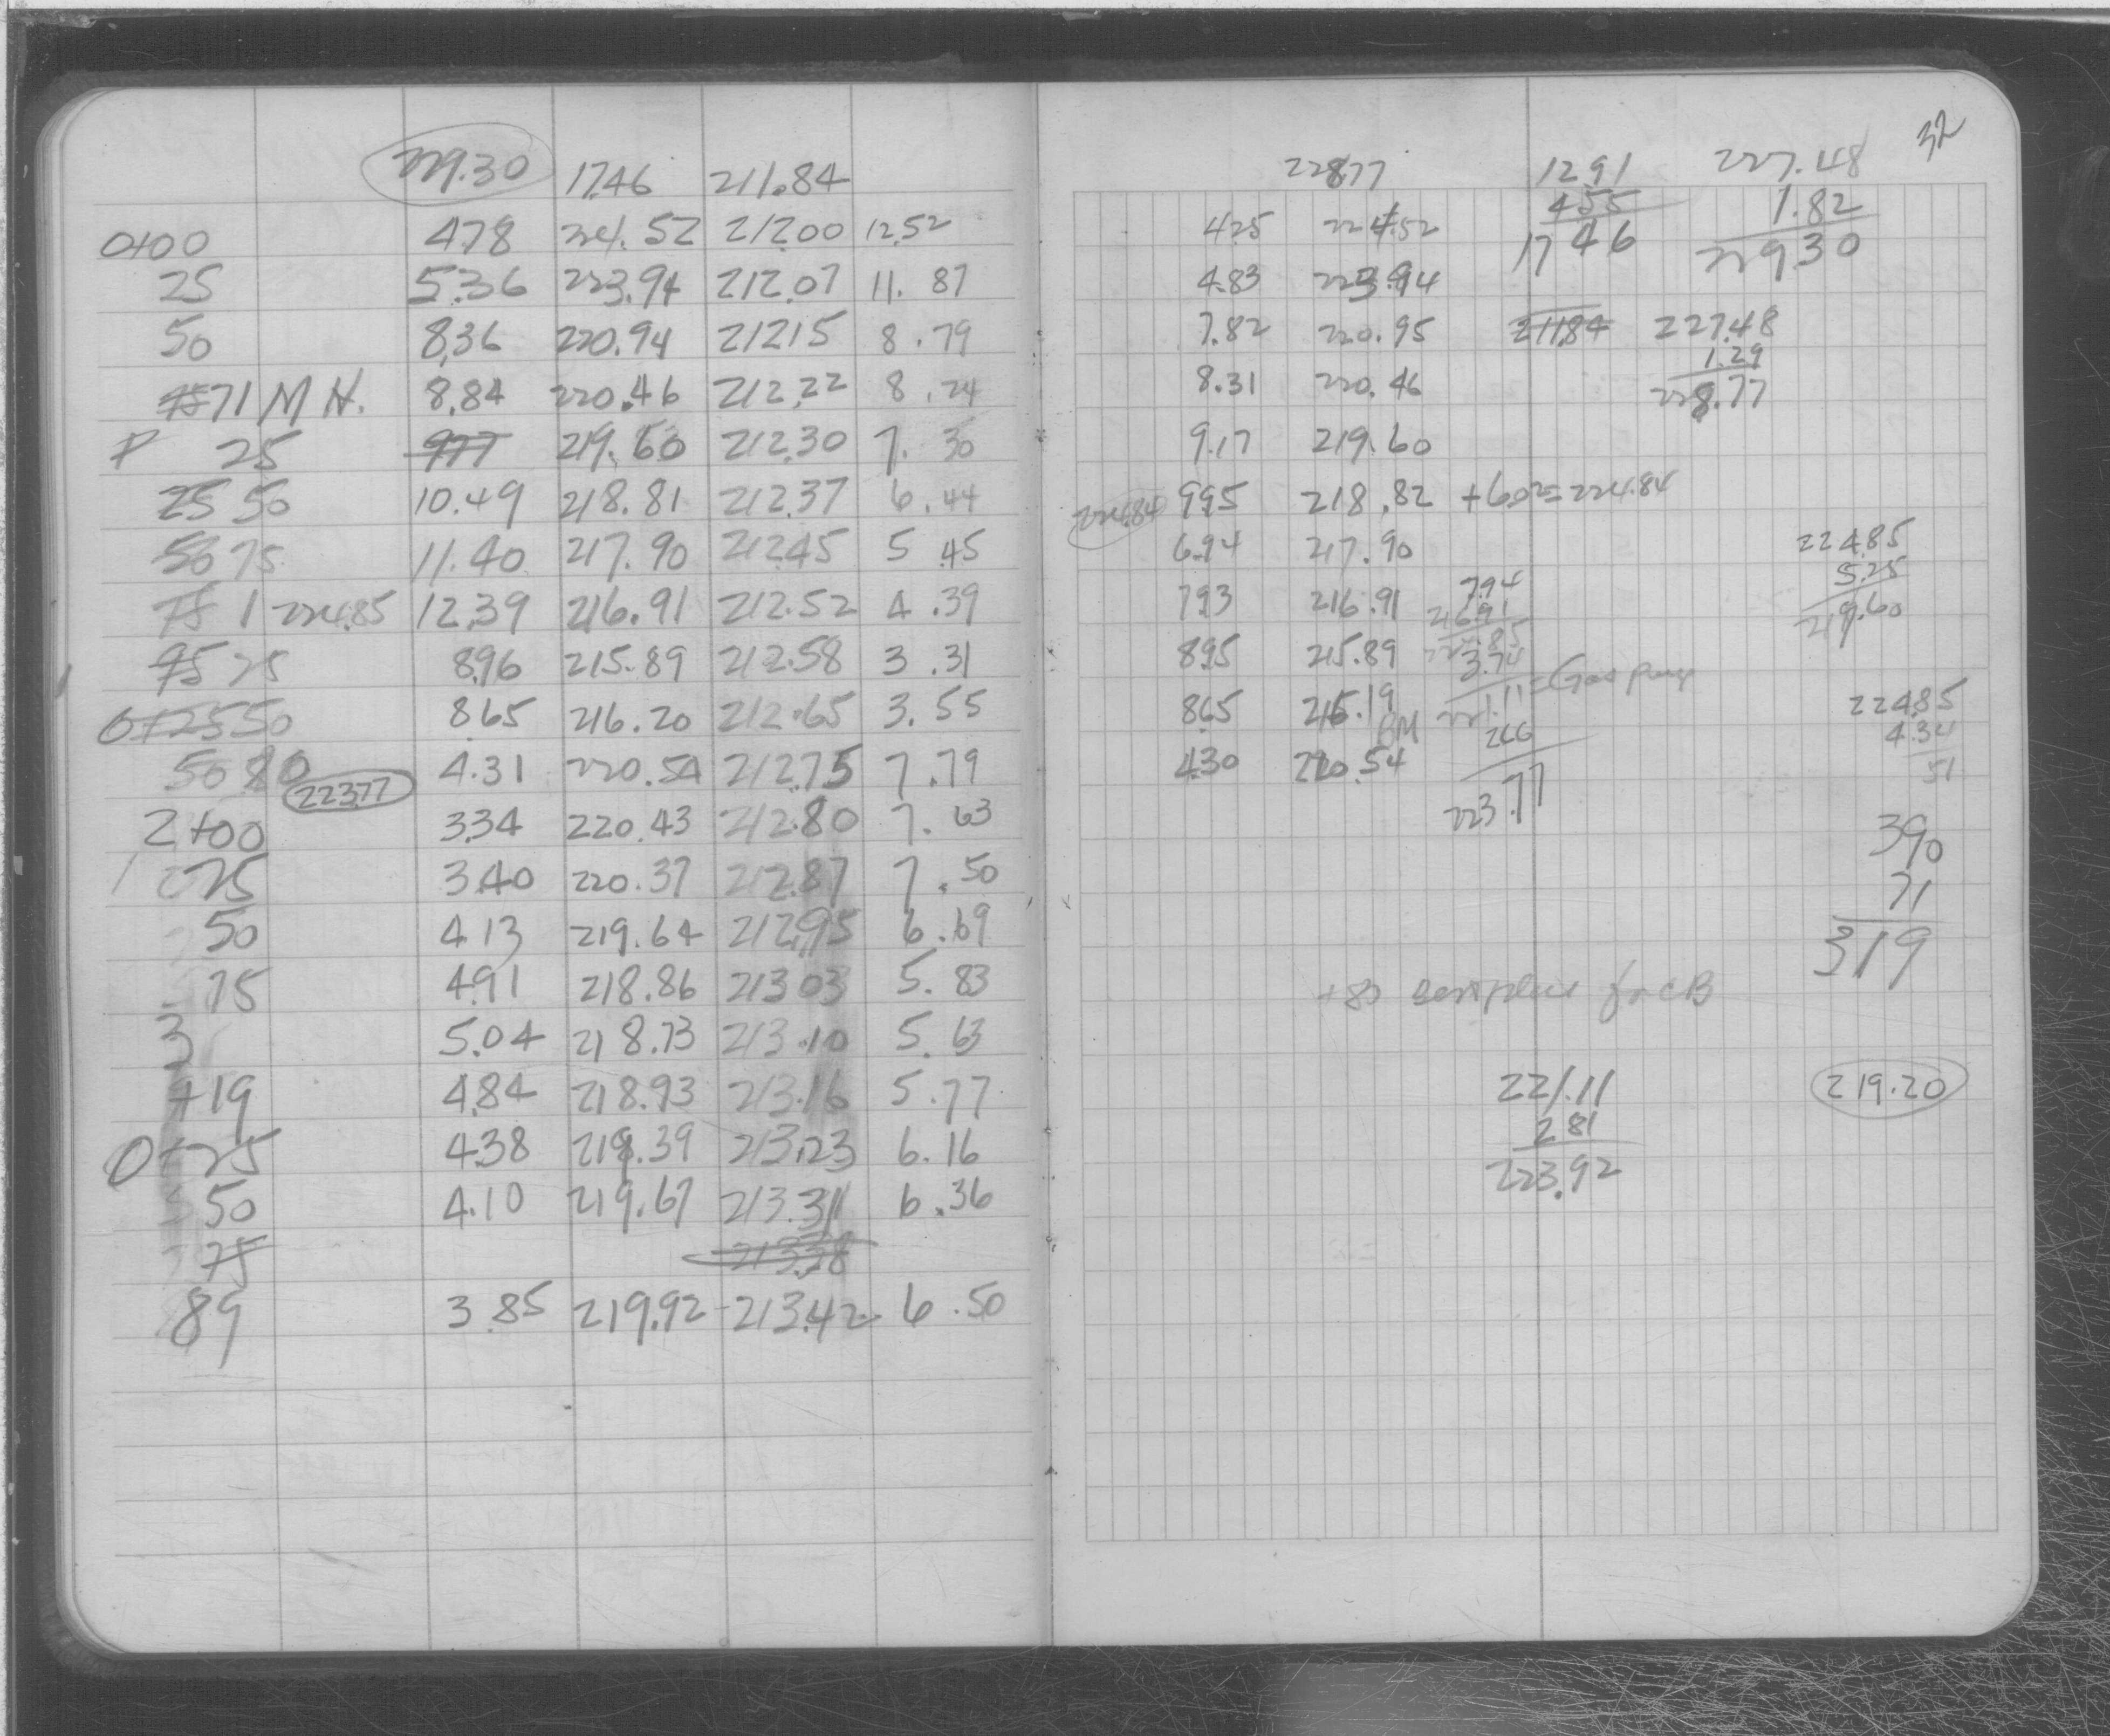 229.30 17.46 211.84
0+00 4.78 224.52 212.00 12.52
25 5.36 223.94 212.07 11.87
50 8.36 220.94 212.15 8.79
71 M H. 8.84 220.46 212.22 8.24
25 9.77 219.60 212.30 7.30
25 50 10.49 218.81 212.37 6.44
50 75 11.40 217.90 212.45 5.45
75 1 224.85 12.39 216.91 212.52 4.39
75 25 8.96 215.89 212.58 3.31
0+25 50 8.65 216.20 212.65 3.55
50 80 4.31 220.54 212.75 7.79
223.77
2+00 3.34 220.43 212.80 7.63
25 3.40 220.37 212.87 7.50
50 4.13 219.64 212.95 6.69
75 4.91 218.86 213.03 5.83
3 5.04 218.73 213.10 5.63
+19 4.84 218.93 213.16 5.77
0+25 4.38 219.39 213.23 6.16
50 4.10 219.67 213.31 6.36
75 213.38
89 3.85 219.92 213.42 6.50
32
228.77 12.91 227.48
4.55 1.82
4.25 224.52 17 46 229.30
4.83 223.94
7.82 220.95 211.84 227.48
1.29
8.31 220.46 228.77
9.17 219.60
224.84 9.95 218.82 +6.02=224.84
6.94 217.90 224.85
5.25
7.93 216.91 7.94 219.60
216.91
224.85
8.95 215.89 3.74
8.65 216.19 221.11 = Gas Pump 224.85
BM 2.66 4.34
4.30 220.54 51
223.77
390
71
319
for CB
221.11 219.20
2.81
223.92